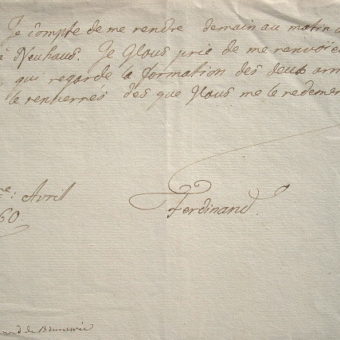 Je compte de me rendre demain au matin
à Neuhaus. Je Vous prie de me renvoïe
qui regarde la formation des deux arm
le renverrés dès que Vous me le redeme
Avril
60
Ferdinand.
de Brunsvic